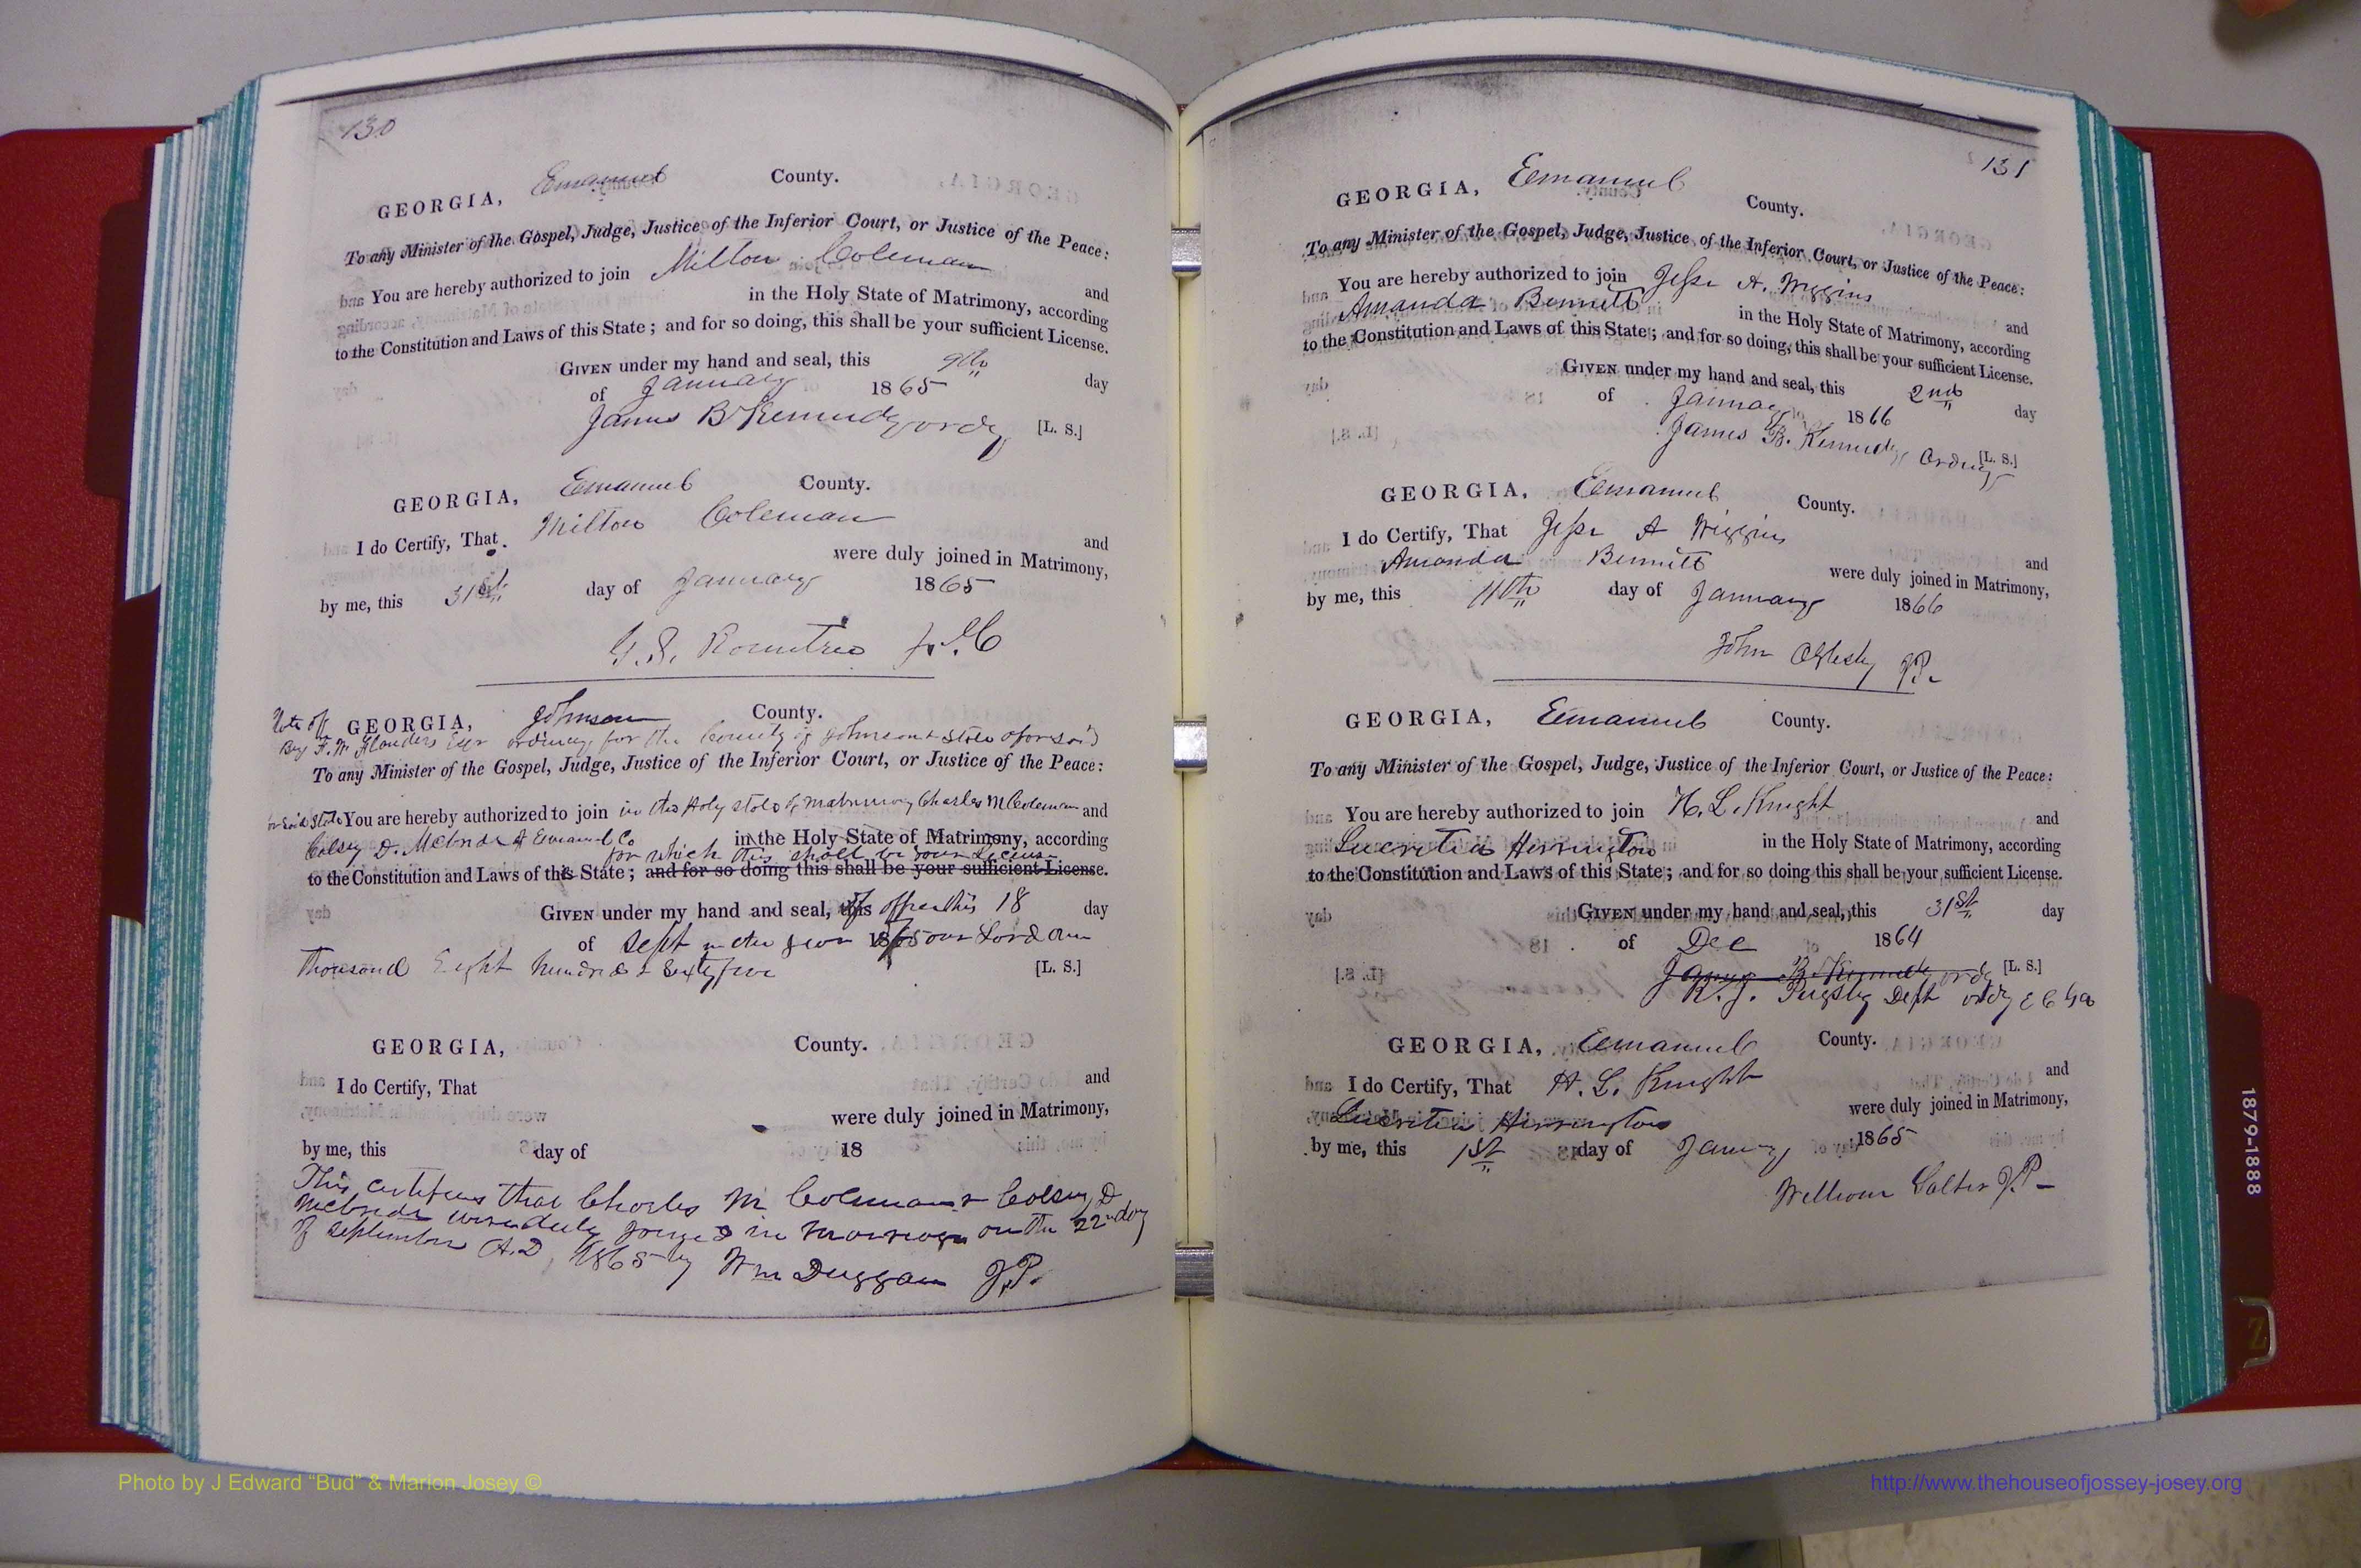 130
GEORGIA, Emanuel County.
To any Minister of the Gospel, Judge, Justice of the Inferior Court, or Justice of the Peace:
You are hereby authorized to join Milton Coleman and
in the Holy State of Matrimony, according
to the Constitution and Laws of this State; and for so doing, this shall be your sufficient License.
GIVEN under my hand and seal, this 9th day
of January 1865
James B Kennedy ordy [L. S.]
GEORGIA, Emanuel County.
I do Certify, That Milton Coleman and
were duly joined in Matrimony,
by me, this 31st day of January 1865
Rountree
GEORGIA, Johnson County.
By ordinary for the County of Johnson & State aforesaid
To any Minister of the Gospel, Judge, Justice of the Inferior Court, or Justice of the Peace:
You are hereby authorized to join in the Holy state of matrimony Charles M Coleman and
Colsey D. McBride of Emanuel Co in the Holy State of Matrimony, according
for which this shall be your License
to the Constitution and Laws of this State; and for so doing this shall be your sufficient License.
GIVEN under my hand and seal, this 18 day
of Sept in the year 1865 our Lord one
thousand Eight hundred & Sixty five [L. S.]
GEORGIA, County.
I do Certify, That and
were duly joined in Matrimony,
by me, this day of 18
This certifies that Charles M Coleman & Colsey D
McBride were duly joined in marriage on the 22nd day
of September A.D. 1865 by Wm Duggan J.P.
131
GEORGIA, Emanuel County.
To any Minister of the Gospel, Judge, Justice of the Inferior Court, or Justice of the Peace:
You are hereby authorized to join Jesse A. Wiggins and
Amanda Bennett in the Holy State of Matrimony, according
to the Constitution and Laws of this State; and for so doing, this shall be your sufficient License.
GIVEN under my hand and seal, this 2nd day
of January 1866
James B. Kennedy Ordinary [L. S.]
GEORGIA, Emanuel County.
I do Certify, That Jesse A Wiggins and
Amanda Bennett were duly joined in Matrimony,
by me, this 11th day of January 1866
John Oglesby J.P.
GEORGIA, Emanuel County.
To any Minister of the Gospel, Judge, Justice of the Inferior Court, or Justice of the Peace:
You are hereby authorized to join H. L. Knight and
Lucretia Herrington in the Holy State of Matrimony, according
to the Constitution and Laws of this State; and for so doing this shall be your sufficient License.
GIVEN under my hand and seal, this 31st day
of Dec 1864
James B. Kennedy ordy [L. S.]
R. J. Pugsley Dept ordy E C Ga
GEORGIA, Emanuel County.
I do Certify, That H. L. Knight and
Lucretia Herrington were duly joined in Matrimony,
by me, this 1st day of January 1865
William Salter J.P.
1879-1888
Z
Photo by J Edward “Bud” & Marion Josey ©
http://www.thehouseofjossey-josey.org